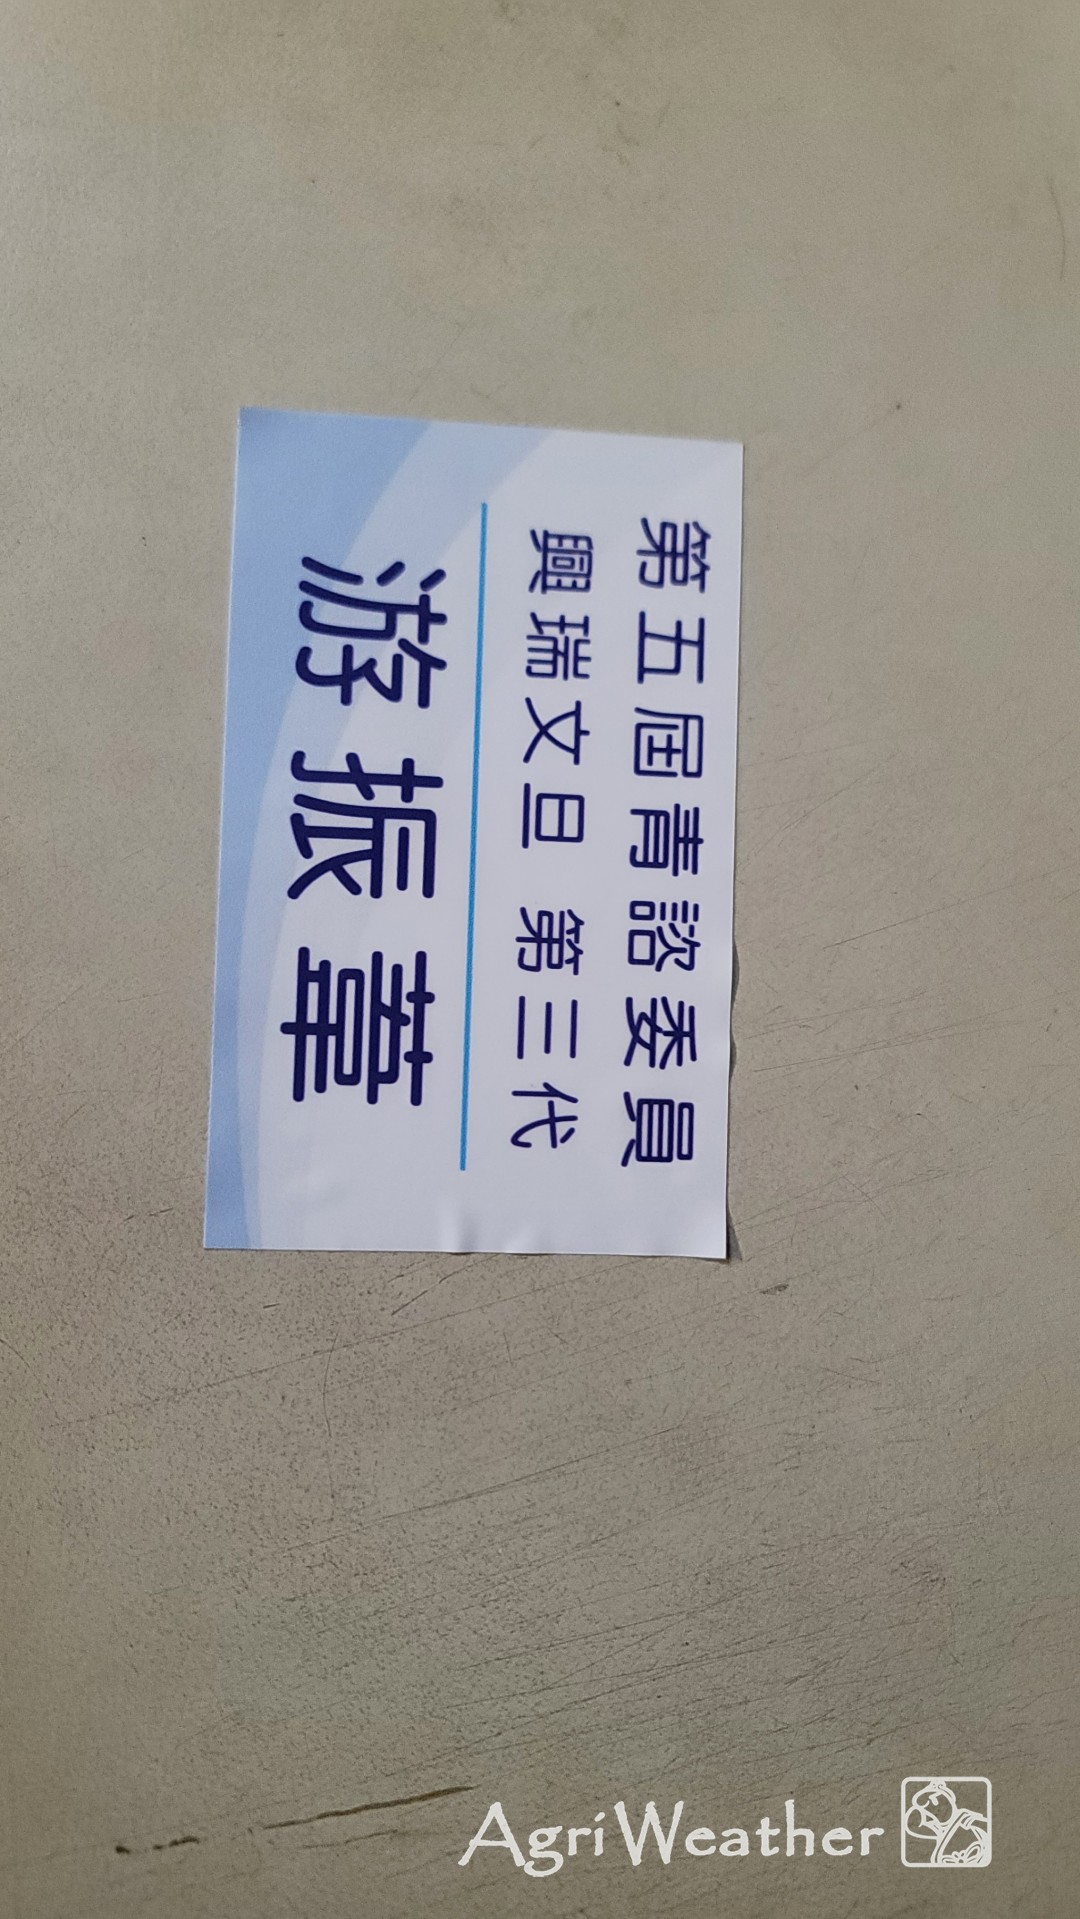 第五屆青諮委員
興瑞文旦 第三代
游振葦
AgriWeather